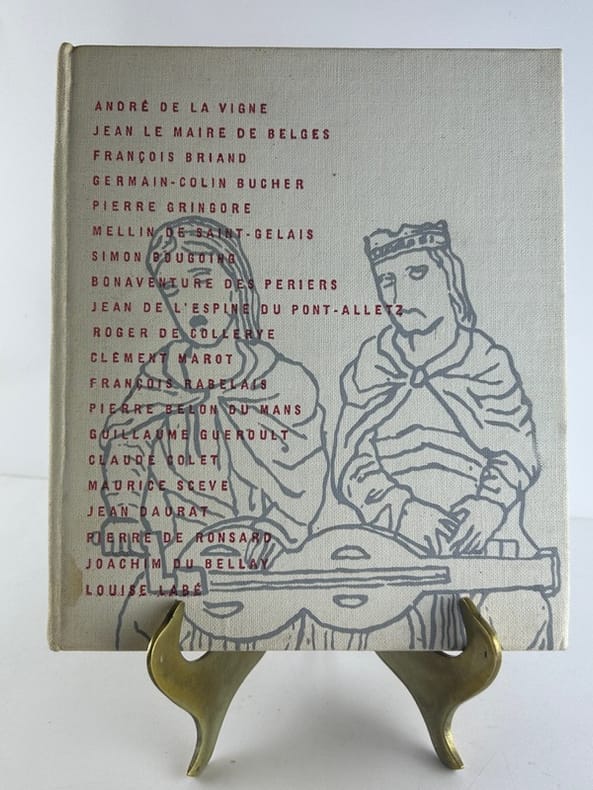 ANDRÉ DE LA VIGNE
JEAN LE MAIRE DE BELGES
FRANÇOIS BRIAND
GERMAIN-COLIN BUCHER
PIERRE GRINGORE
MELLIN DE SAINT-GELAIS
SIMON BOUGOING
BONAVENTURE DES PERIERS
JEAN DE L'ESPINE DU PONT-ALLETZ
ROGER DE COLLERYE
CLÉMENT MAROT
FRANÇOIS RABELAIS
PIERRE BELON DU MANS
GUILLAUME GUEROULT
CLAUDE COLET
MAURICE SCEVE
JEAN DAURAT
PIERRE DE RONSARD
JOACHIM DU BELLAY
LOUISE LABÉ